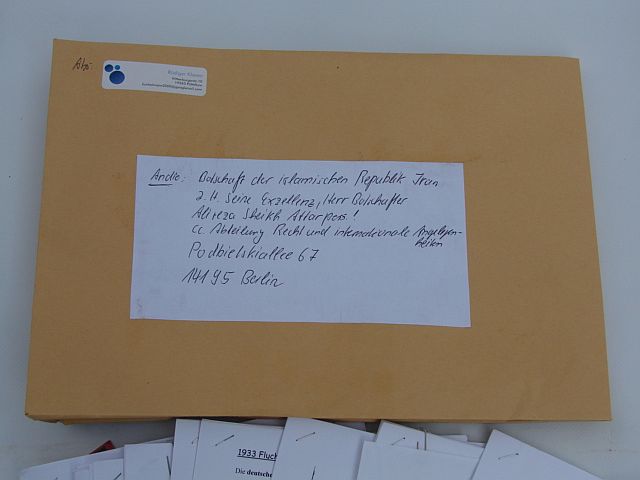 Abs.
Rüdiger Klasen
19243 Püttelkow
An die: Botschaft der islamischen Republik Iran
z.H. Seine Exzellenz, Herr Botschafter
Alireza Sheikh Attar pers.!
cc Abteilung Recht und internationale Angelegen-
heiten
Podbielskiallee 67
14195 Berlin
1933 Fluch
Die deutsche